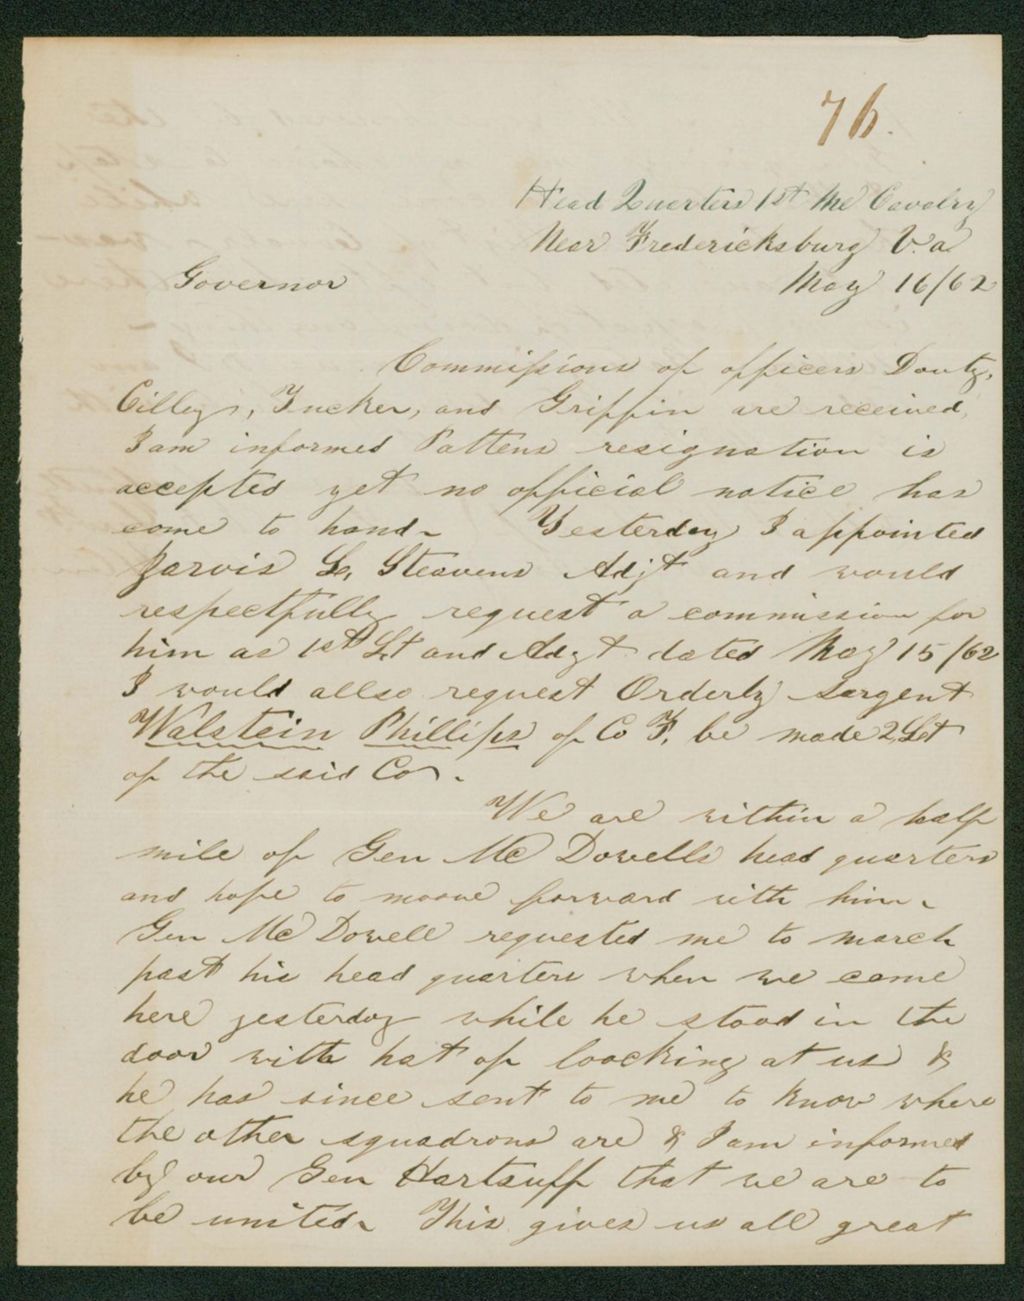 76.
Head Quarters 1st Me Cavalry
Near Fredericksburg V.a
Governor May 16/62
Commissions of officers Douty,
Cilley, Tucker, and Griffin are received,
I am informed Pattens resignation is
accepted yet no official notice has
come to hand- Yesterday I appointed
Jarvis C, Steavens Adjt and would
respectfully request a commission for
him as 1st Lt and Adgt dated May 15/62
I would allso request Orderly sargent
Walstein Phillips of Co F, be made 2 Lt
of the said Co.
We are within a half
mile of Gen Mc Dowells head quarters
and hope to moove forward with him-
Gen Mc Dowell requested me to march
past his head quarters when we came
here yesterday while he stood in the
door with hat of loocking at us &
he has since sent to me to know where
the other squadrons are & I am informed
by our Gen Hartsuff that we are to
be united- This gives us all great